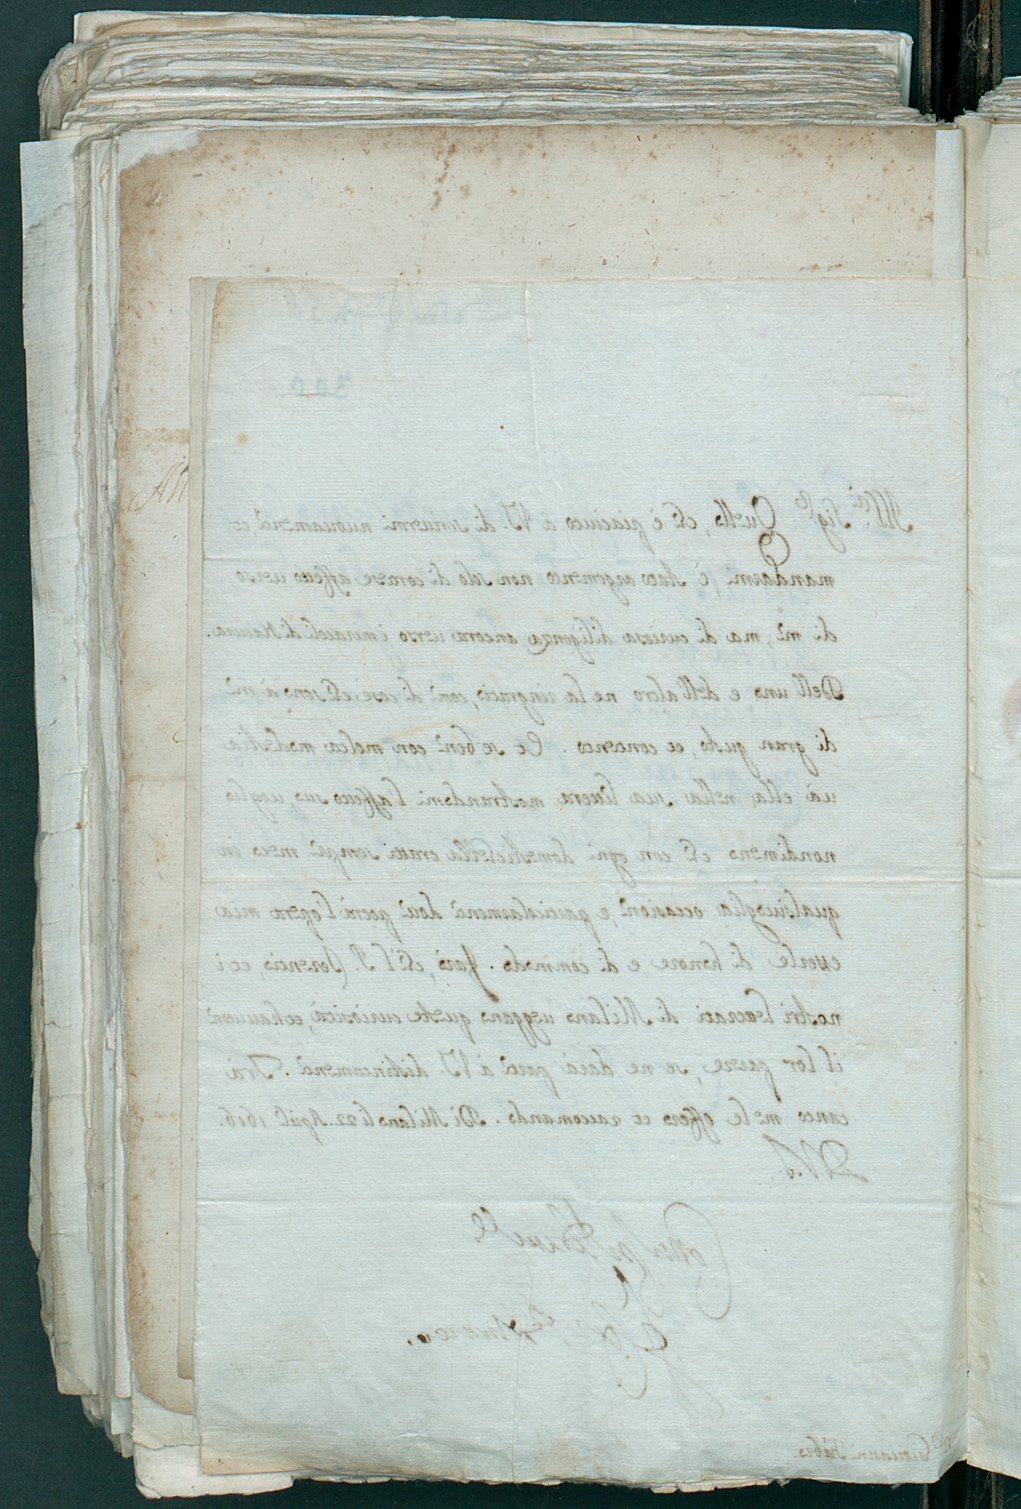 300
Ill.re Sig.re Quello, che è piaciuto à VS. di scriuermi nuouamente et
mandarmi, è stato argomento non solo di cortese affetto uerso
di mè, ma di curiosa diligenza ancora uerso i miracoli di natura.
Dell'uno e dell'altro ne la ringratio, come di cose che sono à mè
di gran gusto, et contento. Et se bene con molta modestia
uà ella nella sua lettera mostrandomi l'affetto suo, uoglio
nondimeno che con ogni domestichezza tratti sempre meco in
qualsiuoglia occasione, e particolarmente doue potrà l'opera mia
esserle di honore e di commodo. Farò, che'l P. Terentio, et i
nostri letterati di Milano ueggano queste curiosità, et hauutone
il lor parere, se ne darà parte à VS. distintamente. Trà
tanto me le offero et raccomando. Di Milano li 22. Aprile 1616.
D VS.
Giouanni Fabro